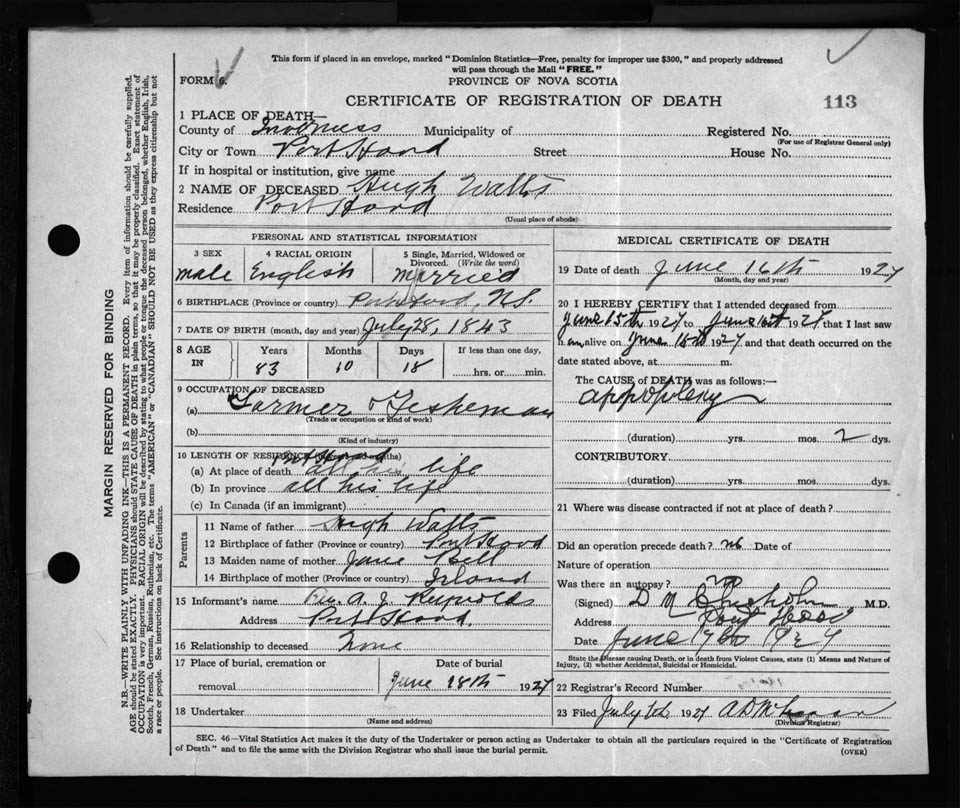 This form if placed in an envelope, marked "Dominion Statistics—Free, penalty for improper use $300," and properly addressed
will pass through the Mail "FREE."
FORM 6.
PROVINCE OF NOVA SCOTIA
CERTIFICATE OF REGISTRATION OF DEATH
113
1 PLACE OF DEATH—
County of Inverness Municipality of Registered No.
(For use of Registrar General only)
City or Town Port Hood Street House No.
If in hospital or institution, give name
2 NAME OF DECEASED Hugh Watts
Residence Port Hood
(Usual place of abode)
PERSONAL AND STATISTICAL INFORMATION
3 SEX 4 RACIAL ORIGIN 5 Single, Married, Widowed or
Divorced. (Write the word)
male English Married
6 BIRTHPLACE (Province or country) Port Hood, N.S.
7 DATE OF BIRTH (month, day and year) July 28, 1843
8 AGE IN Years Months Days If less than one day,
83 10 18 hrs. or min.
9 OCCUPATION OF DECEASED
(a) Farmer & Fisherman
(Trade or occupation or kind of work)
(b)
(Kind of industry)
10 LENGTH OF RESIDENCE (in years and months)
(a) At place of death all his life
(b) In province all his life
(c) In Canada (if an immigrant)
Parents
11 Name of father Hugh Watts
12 Birthplace of father (Province or country) Port Hood
13 Maiden name of mother Jane Bell
14 Birthplace of mother (Province or country) Irland
15 Informant's name Rev. A. J. Reynolds
Address Port Hood
16 Relationship to deceased None
17 Place of burial, cremation or Date of burial
removal June 18th 1927
18 Undertaker
(Name and address)
MEDICAL CERTIFICATE OF DEATH
19 Date of death June 16th 1927
(Month, day and year)
20 I HEREBY CERTIFY that I attended deceased from
June 15th 1927 to June 16th 1927 that I last saw
h im alive on June 16th 1927 and that death occurred on the
date stated above, at m.
The CAUSE of DEATH was as follows:—
appoplexy
(duration) yrs. mos. 2 dys.
CONTRIBUTORY.
(duration) yrs. mos. dys.
21 Where was disease contracted if not at place of death?
Did an operation precede death? no Date of
Nature of operation
Was there an autopsy? no
(Signed) D M Chisholm M.D.
Address Port Hood
Date June 17th 1927
State the Disease causing Death, or in death from Violent Causes, state (1) Means and Nature of
Injury, (2) whether Accidental, Suicidal or Homicidal.
22 Registrar's Record Number
23 Filed July 1927
(Division Registrar)
SEC. 46—Vital Statistics Act makes it the duty of the Undertaker or person acting as Undertaker to obtain all the particulars required in the "Certificate of Registration
of Death" and to file the same with the Division Registrar who shall issue the burial permit.
(OVER)
MARGIN RESERVED FOR BINDING
N.B.—WRITE PLAINLY WITH UNFADING INK—THIS IS A PERMANENT RECORD. Every item of information should be carefully supplied.
AGE should be stated EXACTLY. PHYSICIANS should STATE CAUSE OF DEATH in plain terms, so that it may be properly classified. Exact statement of
OCCUPATION is very important. RACIAL ORIGIN will be described by stating to what people or tongue the deceased person belonged, whether English, Irish,
Scotch, French, German, Russian, Ruthenian, etc. The terms "AMERICAN" or "CANADIAN" SHOULD NOT BE USED as they express citizenship but not
a race or people. See instructions on back of Certificate.